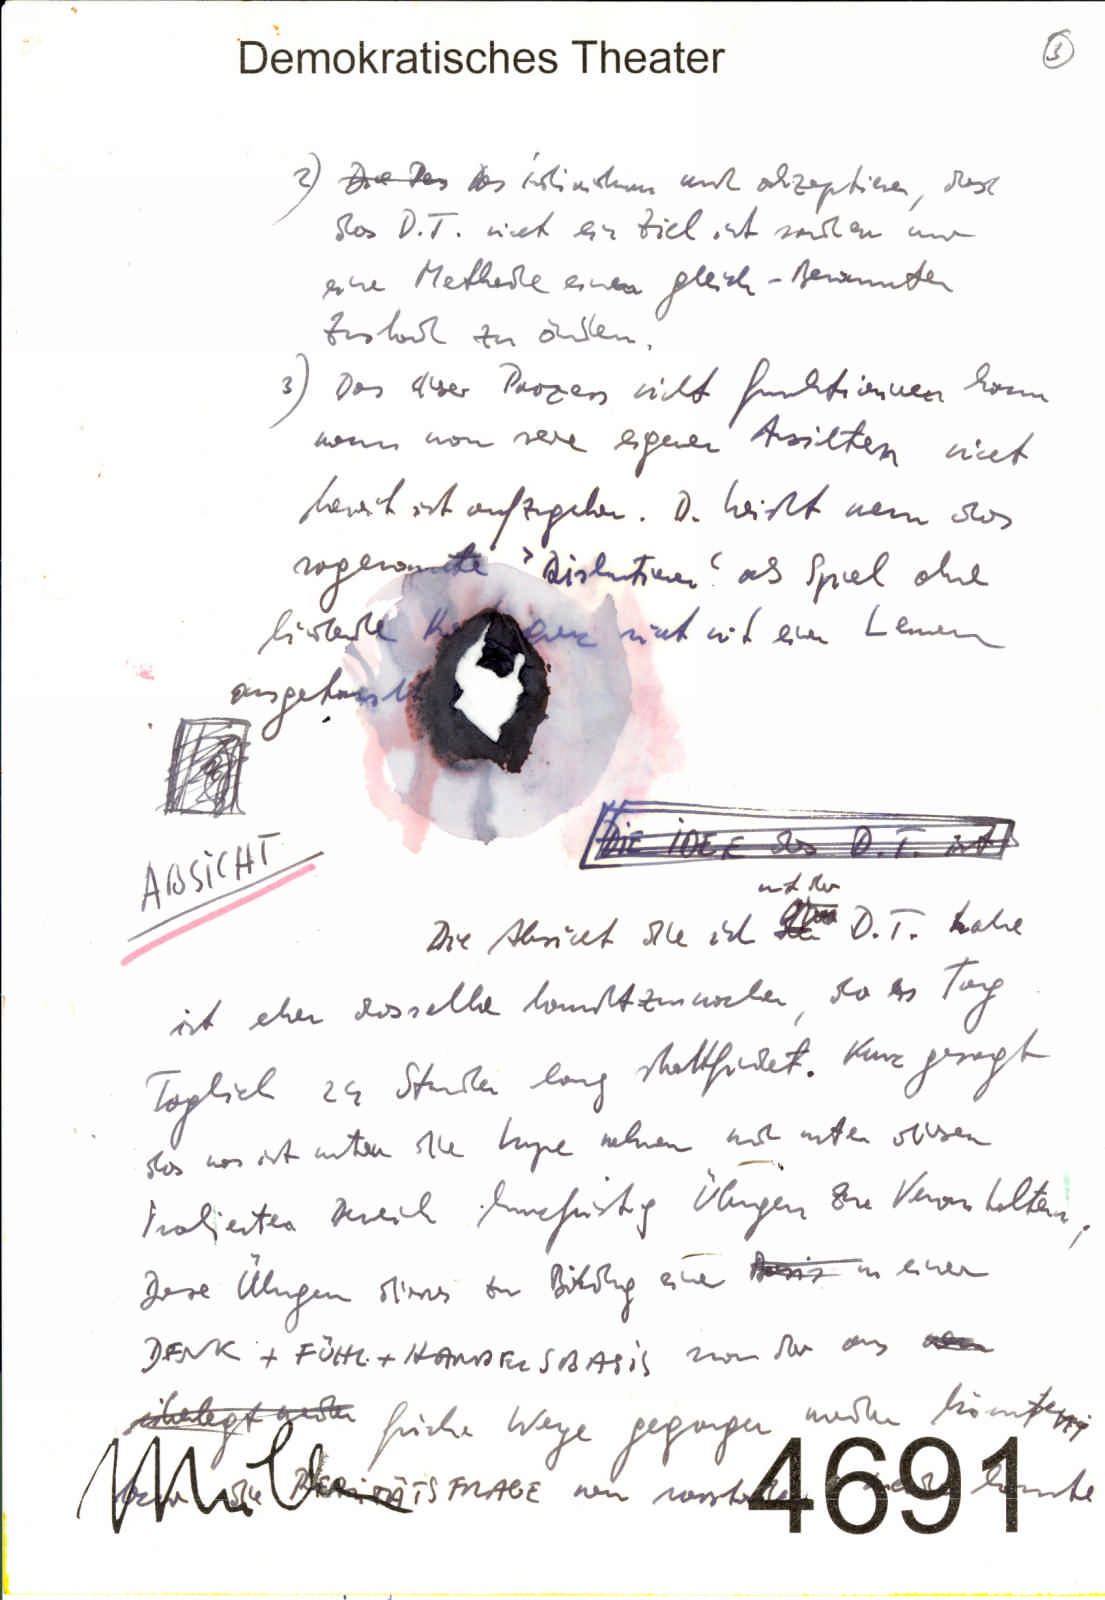 Demokratisches Theater
3
2) Die Das das und akzeptieren, dass
das D.T. nicht ein Ziel ist sondern nur
eine Methode einen gleich-Benannten
Zustand zu ändern.
3) Das dieser Prozess nicht funktionieren kann
wenn man seine eigenen Ansichten nicht
bereit ist aufzugeben. D. heisst wenn das
sogenannte >Diskutieren< als Spiel ohne
nicht mit einem Lernen
ausgetauscht
ABSICHT
DIE IDEE des D.T. ist
mit dem
Die Absicht die ich D.T. habe
ist eben dasselbe kundtzumachen, da es Tag
Täglich 24 Stunden lang stattfindet. Kurz gesagt
das was ist unter die Lupe nehmen und unter diesen
isolierten Bereich kurzfristig Übungen zu Veranstalten,
Diese Übungen dienen zur Bildung einer Basis in einer
DENK + FÜHL + HANDELSBASIS von der aus
überlegt werden frische Wege gegangen werden könnten
die FRAGE neu könnte
4691